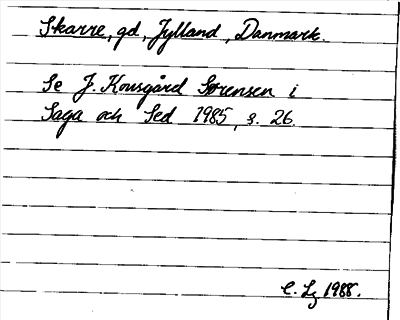 Skarre, gd, Jylland, Danmark.
Se J. Kousgård Sørensen i
Saga och Sed 1985, s. 26.
C. Lz 1988.